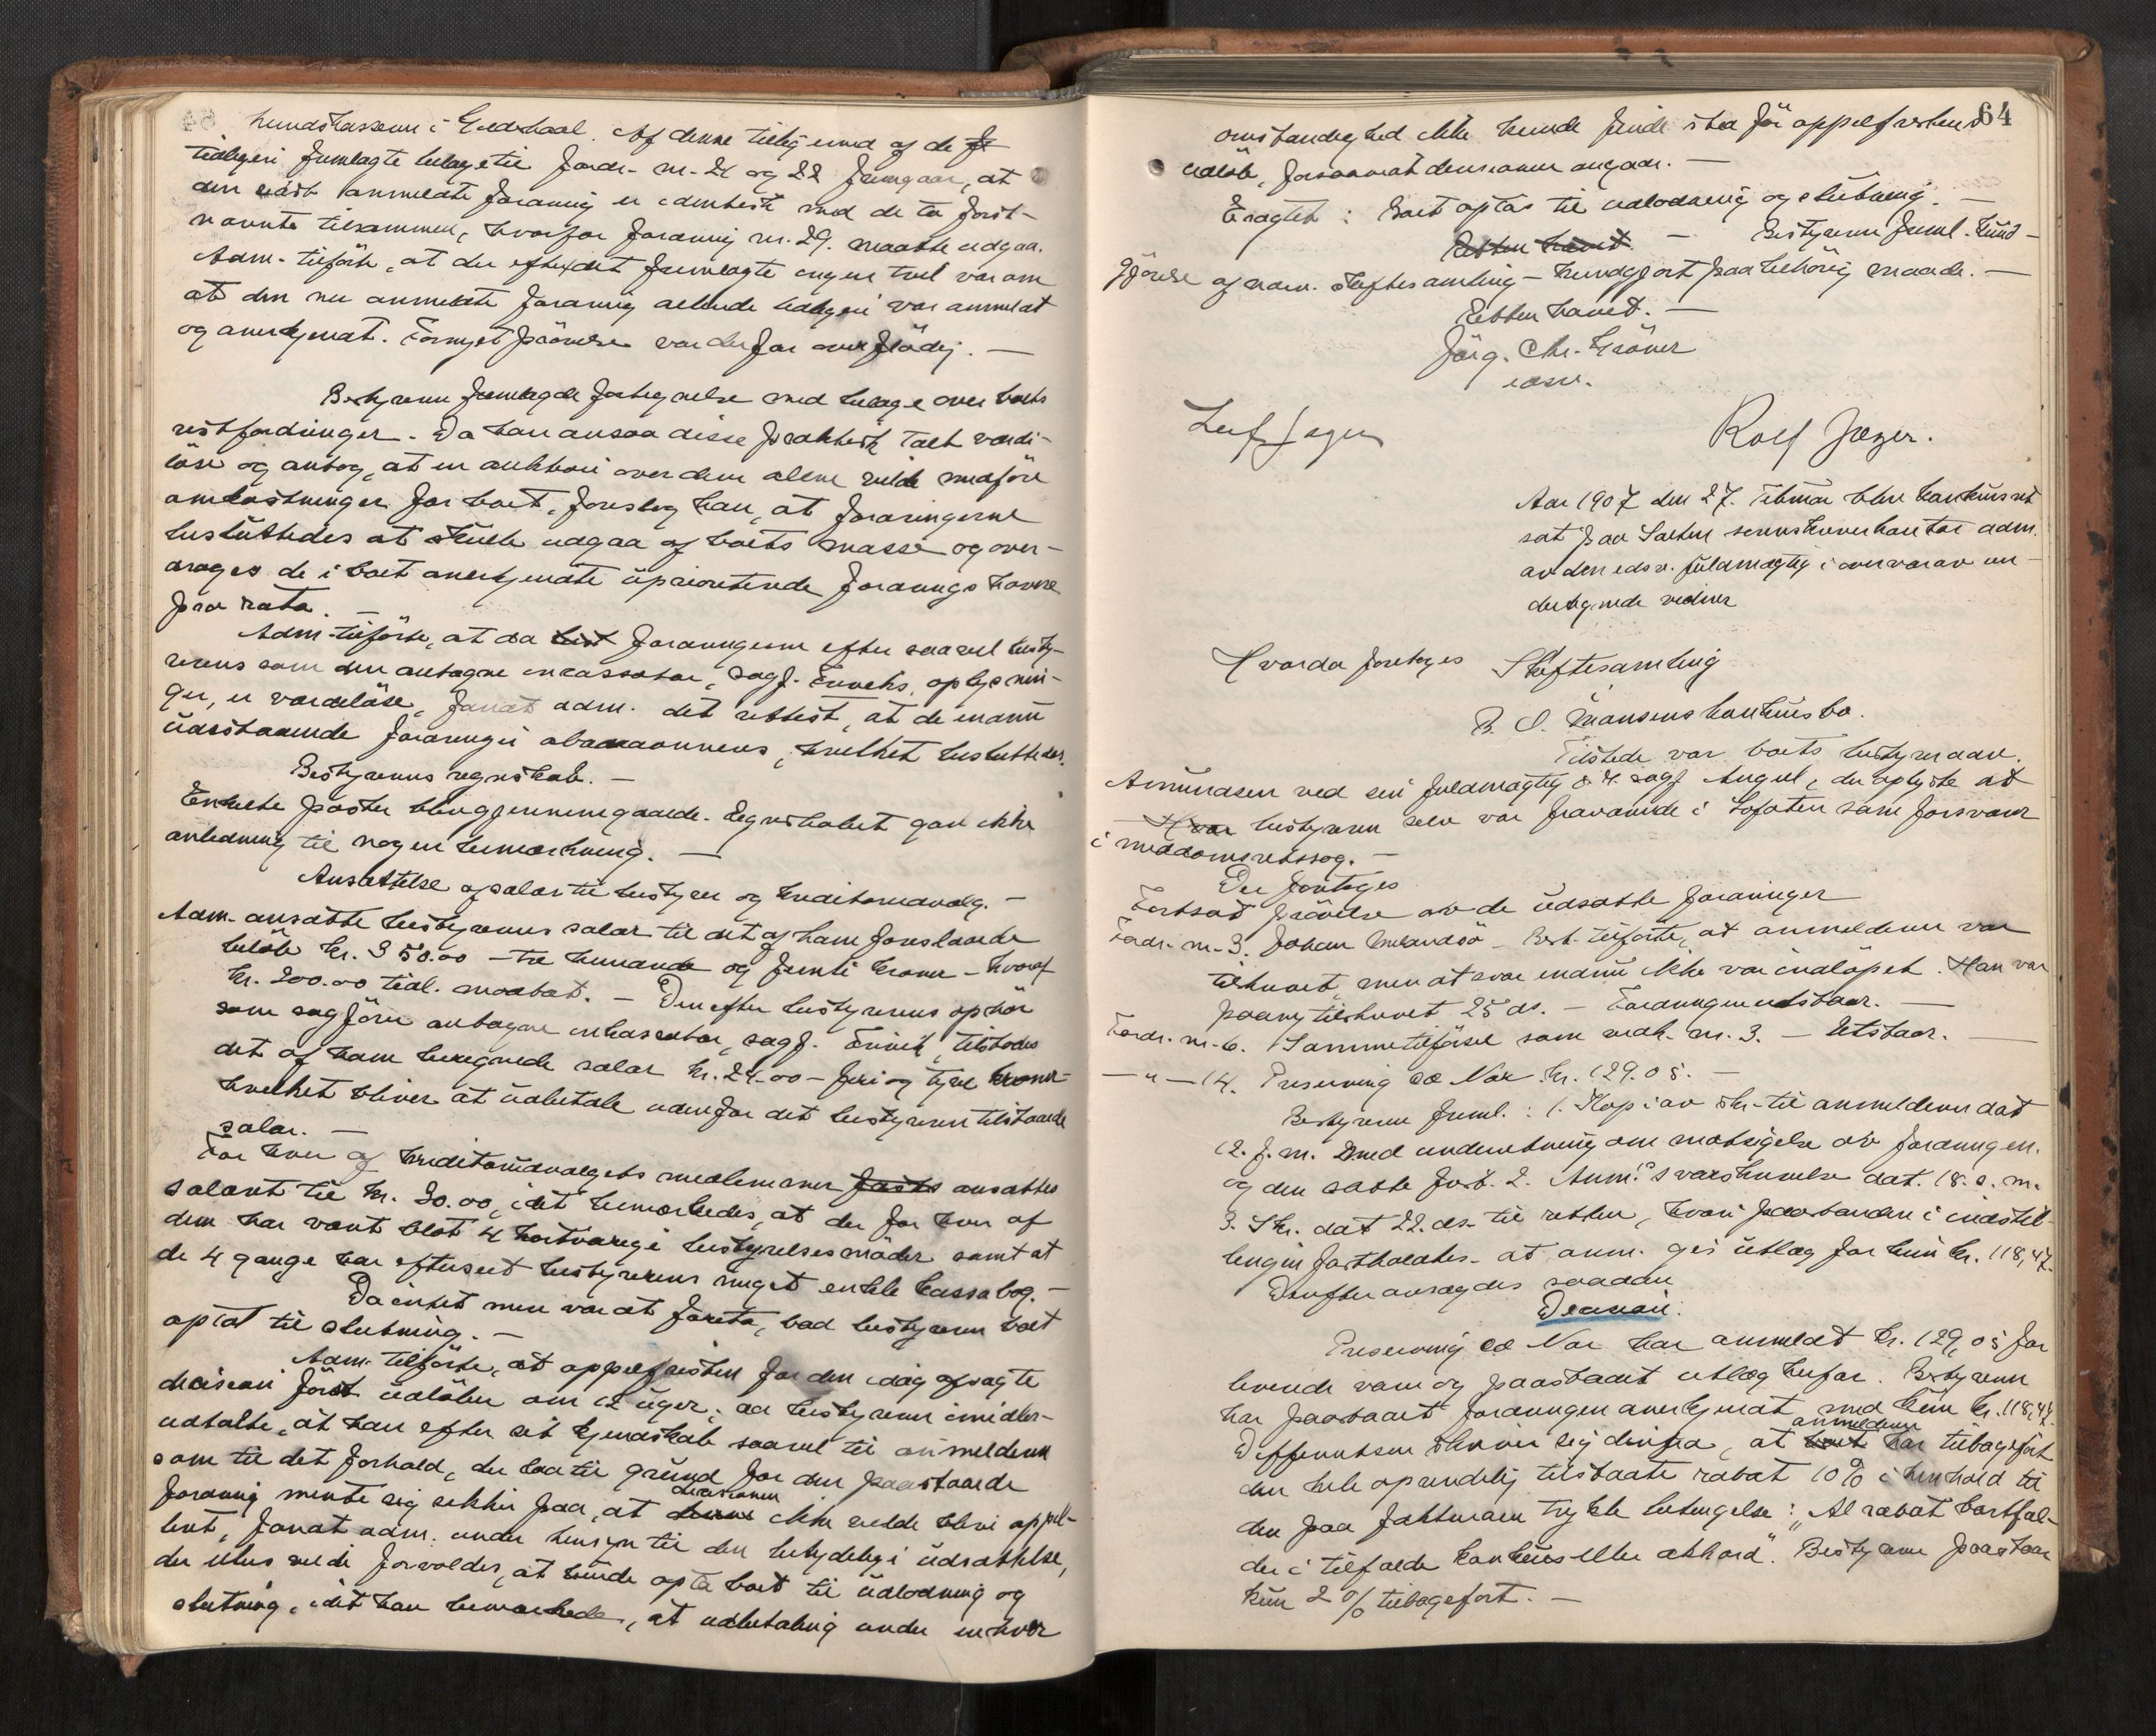 hundskassenn i Guldskaal. Af denne tillig med af de
tidligere fremlagte bilage til fordr. nr. 21 og 22 fremgaar, at
den sidst anmeldte fordring er identisk med de to først-
nævnte tilsammen, hvorfor fordring nr. 29. maatte udgaa.
Adm. tilførte, at der efter det fremlagte ingen tvil var om
at den nu anmeldte fordring allerede tidligere var anmeldt
og anerkjendt. Fornyet prøvelse var derfor overflødig. —
Bestyreren fremlagde fortegnelse med bilage over boets
restfordringer. Da han ansaa disse praktisk talt værdi-
løse og antog, at en auktion over dem alene vilde medføre
omkostninger for boet, foreslog han, at fordringerne
besluttedes at skulle udgaa af boets masse og over-
drages de i boet anerkjendte uprioriterede fordringshavere
pro rata. —
Adm. tilførte, at da fordringerne efter saavel besty-
rerens som den antagne incassator, sagf. Enochs, oplysnin-
ger, er værdiløse, fandt adm. det rettest, at de endnu
udestaaende fordringer abandonneres, hvilket besluttedes.
Bestyrerens regnskab. —
Enkelte poster blev gjennemgaaede. Regnskabet gav ikke
anledning til nogen bemærkning. —
Ansættelse af salær til bestyrer og kreditorudvalg. —
Adm. ansatte bestyrerens salær til det af ham foreslaaede
beløb kr. 350.00 — tre hundrede og femti kroner — hvoraf
kr. 200.00 tidl. modtat. — Den efter bestyrerens ophør
som sagfører antagne inkassator, sagf. Enoch, tilstodes
det af ham beregnede salær kr. 24.00 — firi og tyve kroner —
hvilket bliver at udbetale udenfor det bestyreren tilstaaede
salær. —
For hver af kreditorudvalgets medlemmer fastes ansattes
salæret til kr. 20.00, idet bemærkedes, at der for hver af
dem har været blot 4 kortvarige bestyrelsesmøder samt at
de 4 gange har efterseet bestyrerens meget enkle kassabog. —
Da intet mere var at foreta, bad bestyreren boet
optat til slutning. —
Adm. tilførte, at appelfristen for den idag afsagte
decision først udløber om 12 uger; da bestyreren imidler-
udtalte, at han efter sit kjendskab saavel til anmelderen
som til det forhold, der laa til grund for den paastaaede
fordring mente sig sikker paa, at decisionen ikke vilde blive appel-
lert, fandt adm. under hensyn til den betydelige udsættelse,
der ellers vilde forvoldes, at kunde opta boet til udlodning og
slutning, idet han bemærkede, at udbetaling under enhver
64
omstændighed ikke kunde finde sted før appelfristens
udløb, forsaavidt decisionen angaar. —
Eragtet: Boet optas til udlodning og slutning. —
Retten hævet. — Bestyreren freml. kund-
gjørelse af nærv. skiftesamling — kundgjort paa behørig maade. —
Retten hævet. —
Jørg. Chr. Grøner
edsv.
Leif Jæger Rolf Jæger.
Aar 1907 den 27. februar blev konkursret
sat paa Salten sorenskriverkontor adm.
av den edsv. fuldmægtig i overvær av un-
dertegnede vidner
Hvorda foretoges Skiftesamling
B. O. Monsens konkursbo.
Tilstede var boets bestyrer adv.
Amundsen ved sin fuldmægtig o. r. sagf. Angell, der oplyste at
Hvor bestyreren selv var fraværende i Lofoten som forsvarer
i meddomsretssag. —
Der foretoges
Fortsat prøvelse av de udsatte fordringer
Fordr. nr. 3. Johan Melandsø — Best. tilførte, at anmelderen var
tilskrevet, men at svar endnu ikke var indløpet. Han var
paany tilskrevet 25 ds. — Fordringen utstaar. —
Fordr. nr. 6. Samme tilførsel som vedk. nr. 3. — Utstaar. —
— " — 14. Preserving Co Nor kr. 129.05. —
Bestyreren freml.: 1. Kopi av skr. til anmelderen dat
12. f. m. med underretning om motsigelse av fordringen.
og den satte frist. 2. Anm.s svarskrivelse dat. 18. s. m.
3. Skr. dat 22. ds. til retten, hvori paastanden i indstil-
lingen fastholdtes. at anm. gis utlæg for kun kr. 118,47.
Derefter avsagdes saadan
Decision:
Preserving Co Nor har anmeldt kr. 129,05 for
leverede varer og paastaaet utlæg herfor. Bestyreren
har paastaaet fordringen anerkjendt med kun kr. 118,47.
Differentsen skriver sig derfra, at anmelderen har tilbageført
den hele oprindelig tilstaate rabat 10% i henhold til
den paa fakturaen trykte betingelse: „Al rabat bortfal-
der i tilfælde konkurs eller akkord". Bestyreren paastaar
kun 2 % tilbageført. —